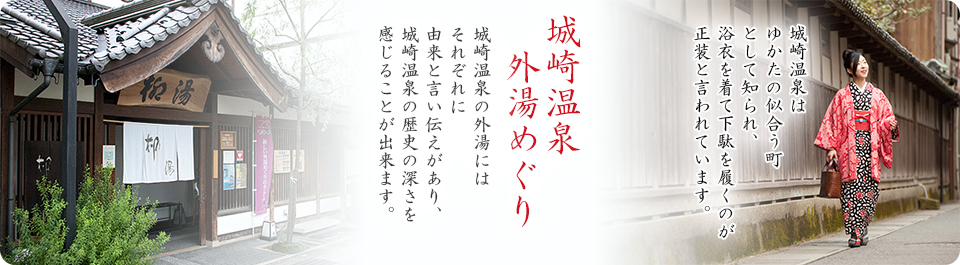 城崎温泉は
ゆかたの似合う町
として知られ、
浴衣を着て下駄を履くのが
正装と言われています。
城崎温泉
外湯めぐり
城崎温泉の外湯には
それぞれに
由来と言い伝えがあり、
城崎温泉の歴史の深さを
感じることが出来ます。
柳湯
柳
湯